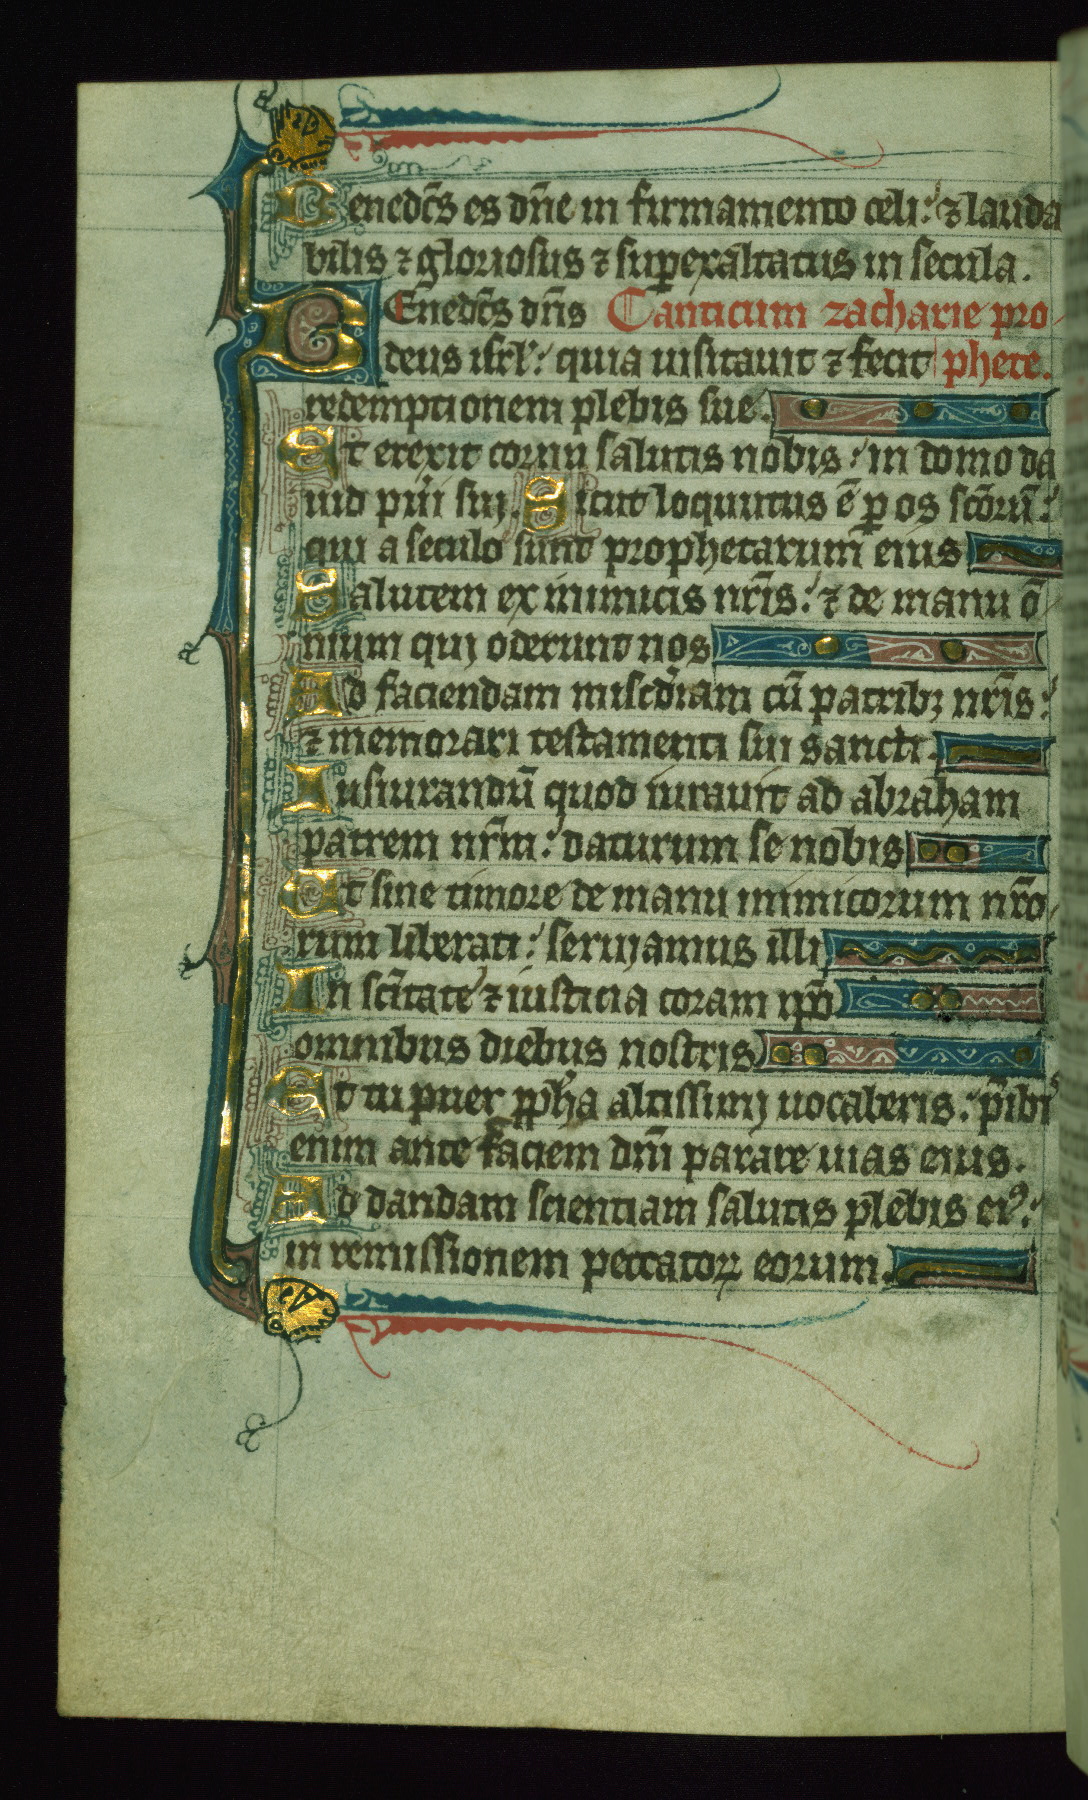 Benedc̄s es dn̄e in firmamento celi: ⁊ lauda
bilis ⁊ gloriosus ⁊ suꝑexaltatus in secula.
BEnedc̄s dn̄s Canticum zacharie pro
deus isrl̄: quia uisitauit ⁊ fecit phete.
redemptionem plebis sue.
Et erexit cornu salutis nobis: in domo da
uid pu̾i sui. Sicut loquutus ē ꝑ os sc̄oru̅:
qui a seculo sunt prophetarum eius
Salutem ex inimicis nr̄is: ⁊ de manu ō
nium qui oderunt nos
Ad faciendam misc̄diam cū patribꝫ nr̄is:
⁊ memorari testamenti sui sancti.
Iusiurandū quod iurauit ad abraham
patrem nr̄m: daturum se nobis
Et sine timore de manu inimicorum nr̄o
rum liberati: seruiamus illi
In sc̄itate ⁊ iusticia coram ip̄o
omnibus diebus nostris
Et tu puer ꝓph̄a altissimi uocaberis: p̄ibis
enim ante faciem dn̄i parare uias eius.
Ad dandam scientiam salutis plebis eiꝰ:
in remissionem peccatoꝝ eorum.